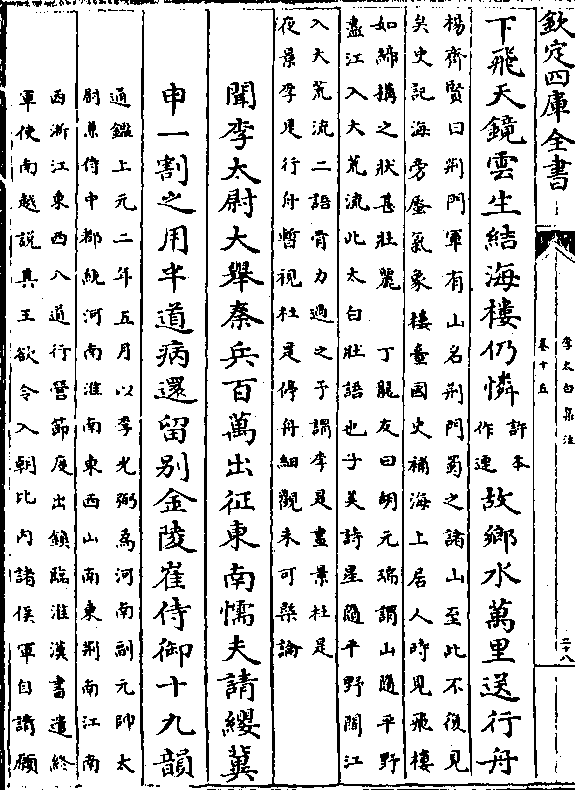 欽定四庫全書
李太白集注
卷十五
二十八
下飛天鏡雲生結海樓仍憐許本作連故鄉水萬里送行舟
楊齊賢曰荆門軍有山名荆門蜀之諸山至此不復見
矣史記海旁蜃氣象樓臺國史補海上居人時見飛樓
如締搆之狀甚壯麗 丁龍友曰胡元瑞謂山隨平野
盡江入大荒流此太白壯語也子美詩星隨平野闊江
入大荒流二語骨力過之予謂李是晝景杜是
夜景李是行舟暫視杜是停舟細觀未可槩論
聞李太尉大舉秦兵百萬出征東南懦夫請纓冀
申一割之用半道病還留别金陵崔侍御十九韻
通鑑上元二年五月以李光弼為河南副元帥太
尉兼侍中都統河南淮南東西山南東荆南江南
西浙江東西八道行營節度出鎮臨淮漢書遣終
軍使南越説其王欲令入朝比内諸侯軍自請願